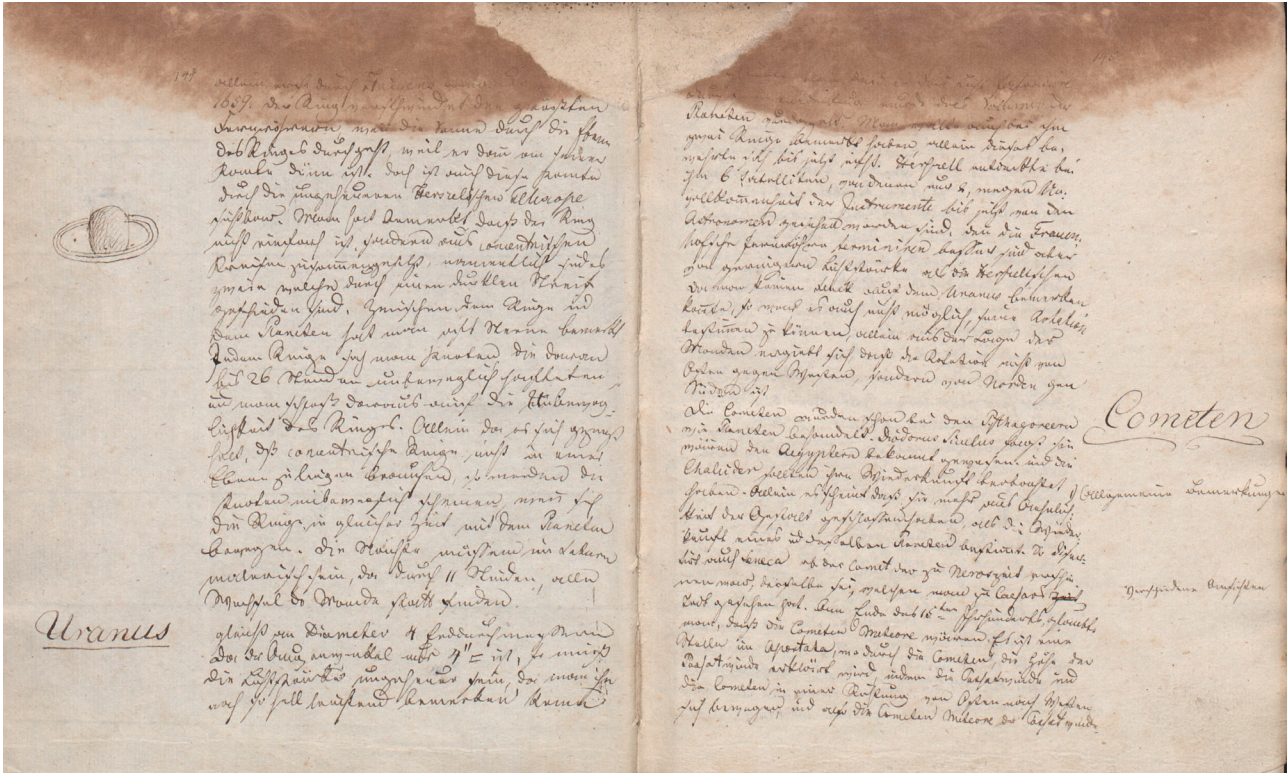 194
allein auch durch
1659. der Ring verschwindet den
Fernröhren, wenn die Sonne durch die Ebene
des Ringes durchgeht, weil er dann am
Kante dünn ist. doch ist auch diese
durch die ungeheueren Herschelschen Telescope
sichtbar. Man hat bemerkt daß der Ring
nicht einfach ist, sondern aus concentrischen
Kreisen zusammengesetzt, namentlich sind es
zwei welche durch einen dunklen Streif
geschieden sind. Zwischen dem Ringe und
dem Planeten hat man oft Sterne bemerkt
In dem Ringe sah man Knoten, die daran
bis 26 Stunden unbeweglich hafteten
und man schloß daraus auf die Unbeweg-
lichkeit des Ringes. Allein da es sich gezeigt
hat, dß concentrische Ringe nicht in einer
Ebene zu liegen brauchen, so werden die
Knoten unbeweglich scheinen, wenn sich
die Ringe in gleicher Zeit mit dem Planeten
bewegen. Die Nächte müssen im Saturn
malerisch sein, da durch 11 Stunden, alle
Wechsel der Monde statt finden.
Uranus
gleicht an Diameter 4 Erddurchmessern
Da der Augenwinkel nur 4" ist, so muß
die Lichtstärke ungeheuer sein, da man ihn
noch so hell leuchtend bemerken
Planeten
zwei Ringe bemerkt haben, allein dieses be-
währte sich bis jetzt nicht. Herschell entdeckte bei
ihm 6 Satelliten, von denen nur 2, wegen Un-
vollkommenheit der Instrumente bis jetzt von den
Astronomen gesehen worden sind, den die Frauen-
hofsche Fernröhre besser sind aber
von geringerer Lichtstärke als die Herschellschen
Da man keinen Fleck auf dem Uranus bemerken
konnte, so war es auch nicht möglich, seine Rotation
bestimmen zu können, allein aus der Lage der
Monden ergiebt sich daß die Rotation nicht von
Osten gegen Westen, sondern von Norden gen
Süden ist
Cometen
Die Cometen wurden schon bei den Pythagoreern
wie Planeten behandelt. Diodorus Siculus sagt sie
wären den Aegyptern bekannt gewesen und die
Chaldäer sollten ihre Wiederkunft beobachtet
Allgemeine Bemerkung
haben. Allein es scheint daß sie mehr aus Aehnlich-
keit der Gestalt geschlossen haben, als die Wieder-
kunft eines und desselben Planeten bestimmt. So
auch Seneca ob der Comet der zu Neros Zeit
nen war, derselbe sei, welchen man zu Caesars
Verschiedene Ansichten
Tode gesehen hat. Am Ende des 16ten Jahrhunderts glaubte
man, daß die Cometen Meteore wären. Es ist eine
Stelle im wodurch die Cometen, die Höhe der
Passatwinde erklärt wird, indem die Passatwinde und
die Cometen in einer Richtung von Osten nach Westen
sich bewegen, und also die Cometen Meteore der